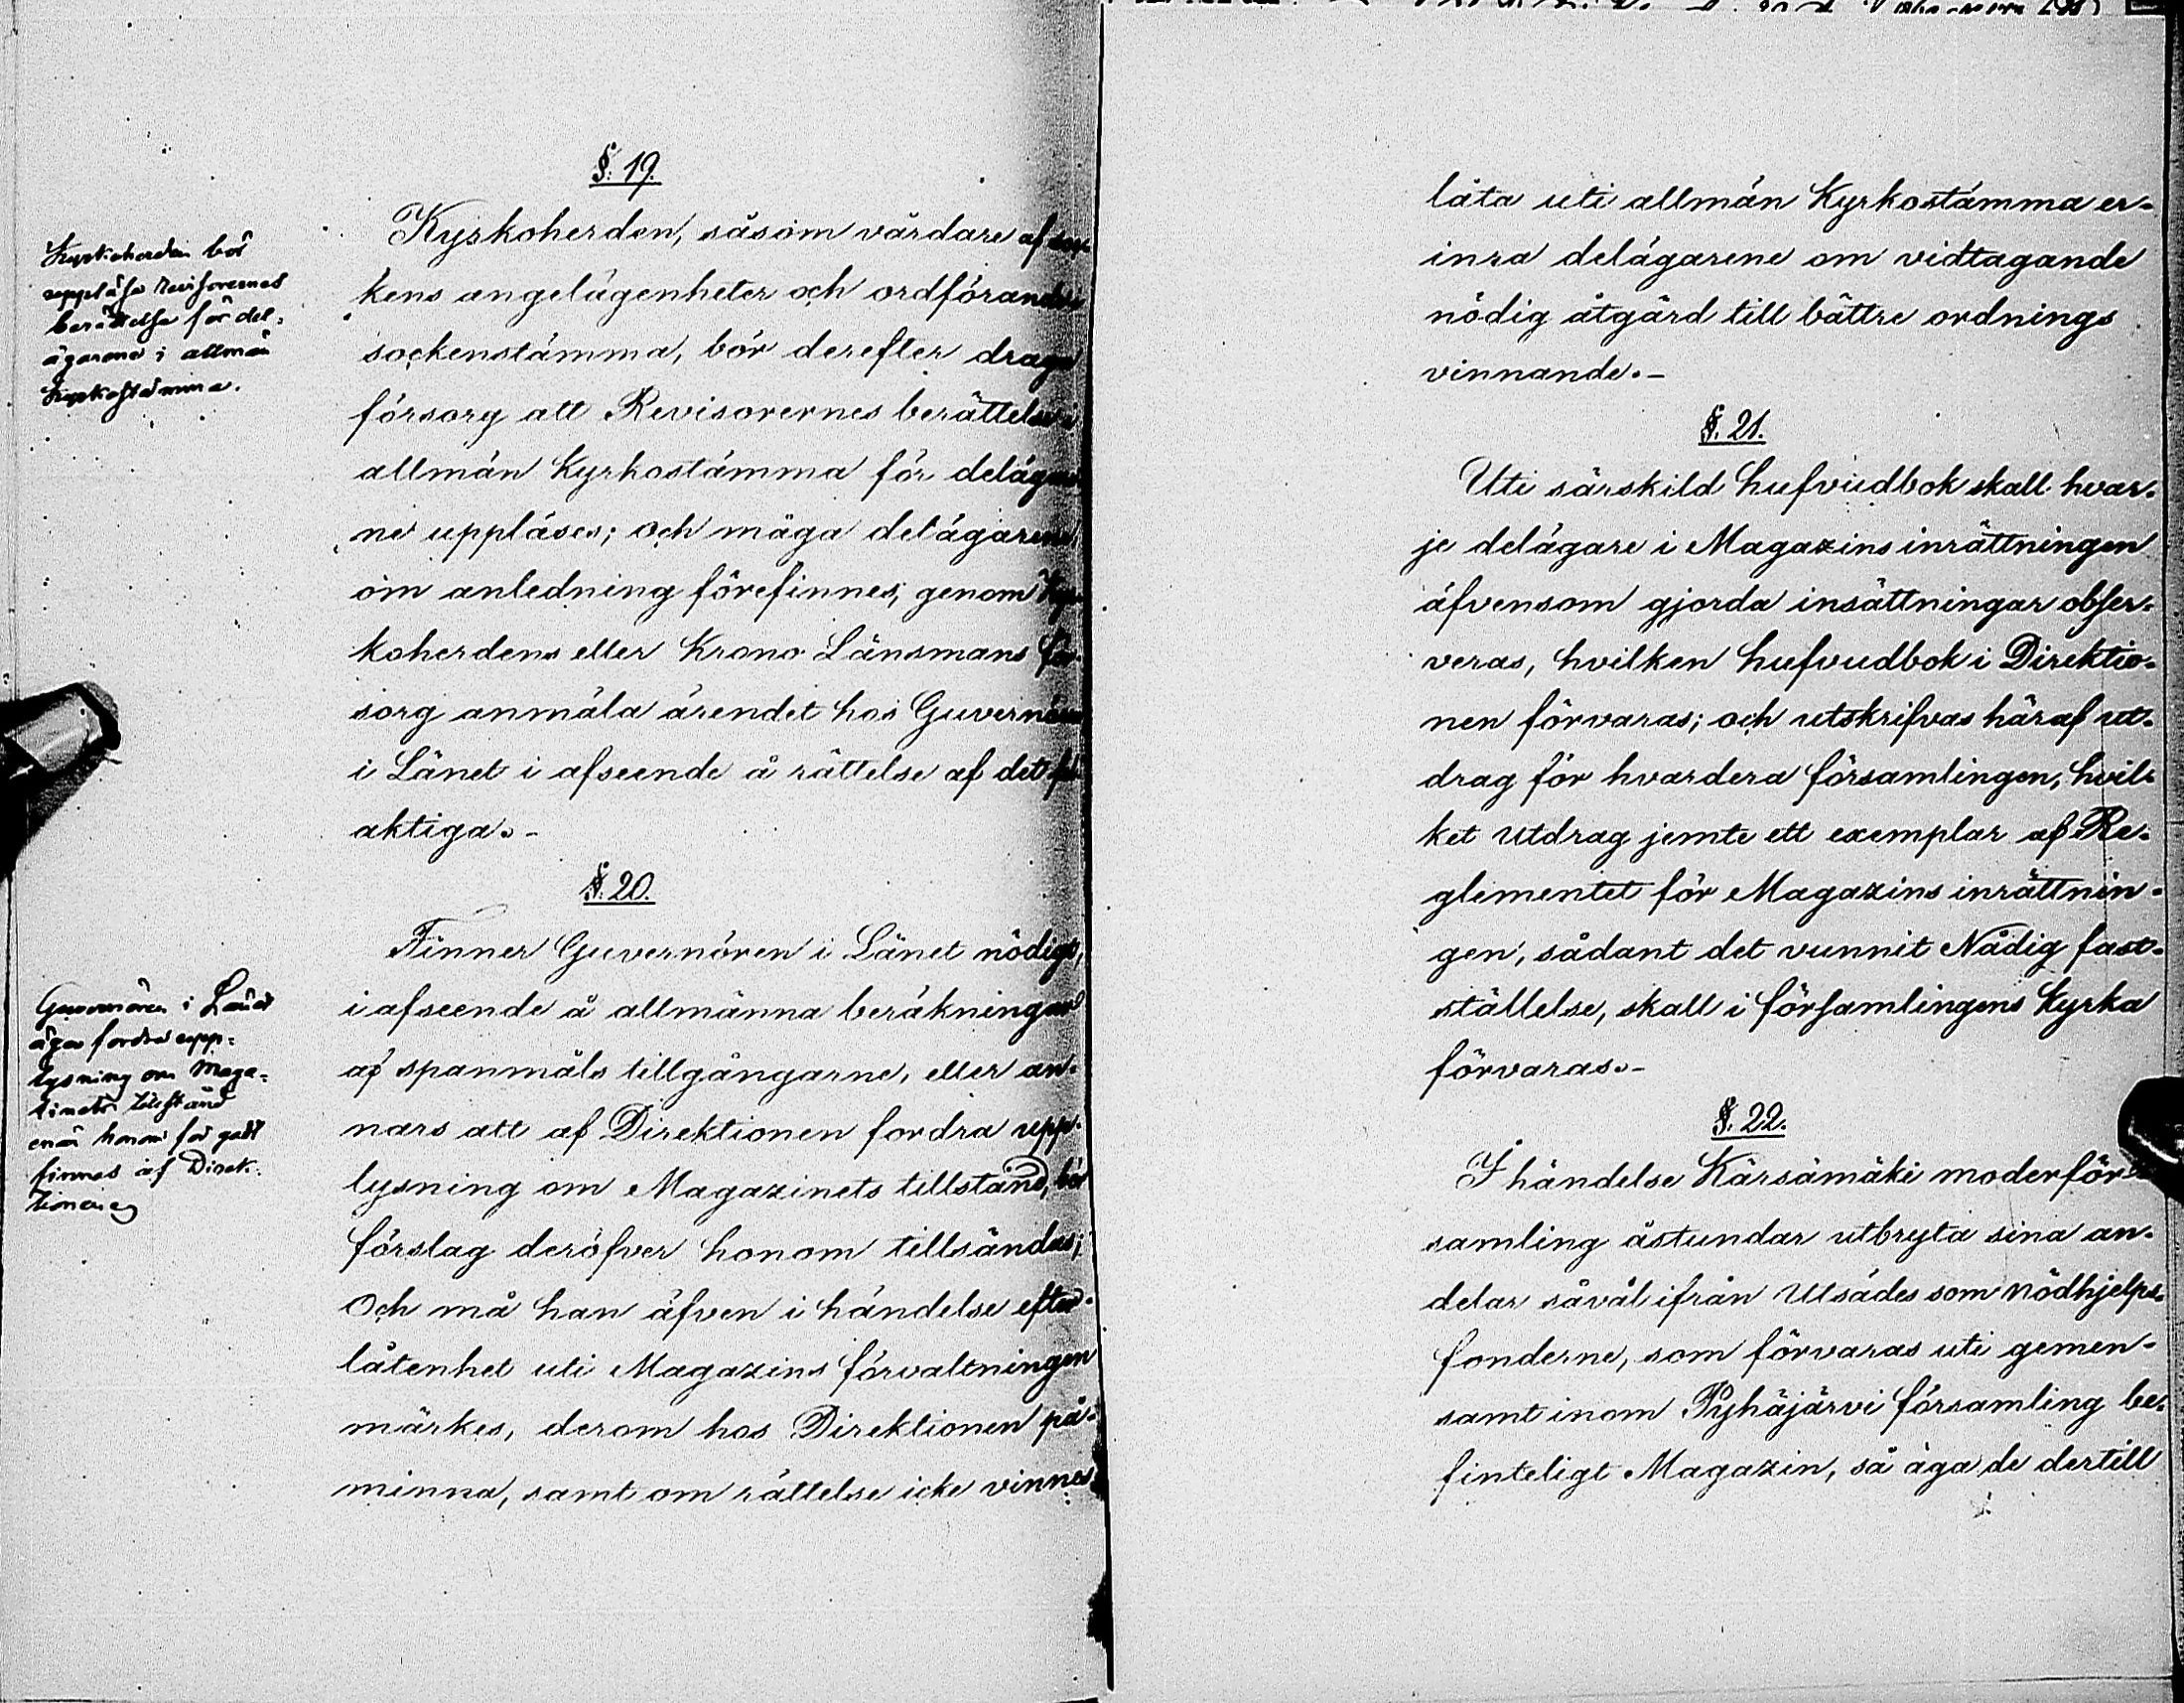 §. 19.
Kyrkoherden, såsom vårdare af soc-
kens angelägenheter och ordförande i
sockenstämma, bör derefter draga
försorg att Revisorernes berättelse i
allmän Kyrkostämma för delägar-
ne uppläses; och måga delägarene
om anledning förefinnes, genom Kyr-
koherdens eller Krono Länsmans för-
sorg anmäla ärendet hos Guvernören
i Länet i afseende å rättelse af det fel-
aktiga.-
Kyrkoherden bör
uppläsa Revisorernes
berättelse för del-
ägarene i allmän
Kyrkostämma.
§. 20.
Finner Guvernören i Länet nödigt,
i afseende å allmänna beräkningar
af spanmåls tillgångarne, eller an-
nars att af Direktionen fordra upp-
lysning om Magazinets tillstånd, bör
förslag deröfver honom tillsändas;
Och må han äfven i händelse efter-
låtenhet uti Magazins förvaltningen
märkes, derom hos Direktionen på-
minna, samt om rättelse icke vinnes
Guvernören i Länet
äger fordra upp-
lysning om Maga-
zinets tillstånd
enär honom för godt
finnes af Direk-
tionen
låta uti allmän Kyrkostämma er-
inra delägarene om vidtagande
nödig åtgärd till bättre ordnings
vinnande.-
§. 21.
Uti särskild hufvudbok skall hvar-
je delägare i Magazins inrättningen
äfvensom gjorda insättningar obser-
veras, hvilken hufvudbok i Direktio-
nen förvaras; och utskrifvas häraf ut-
drag för hvardera församlingen, hvil-
ket utdrag jemte ett exemplar af Re-
glementet för Magazins inrättnin-
gen, sådant det vunnit Nådig fast-
ställelse, skall i församlingens Kyrka
förvaras.-
§. 22.
I händelse Kärsämäki moderför-
samling åstundar utbryta sina an-
delar såväl ifrån Utsädes som nödhjelps-
fonderne, som förvaras uti gemen-
samt inom Pyhäjärvi församling be-
finteligt Magazin, så äga de dertill